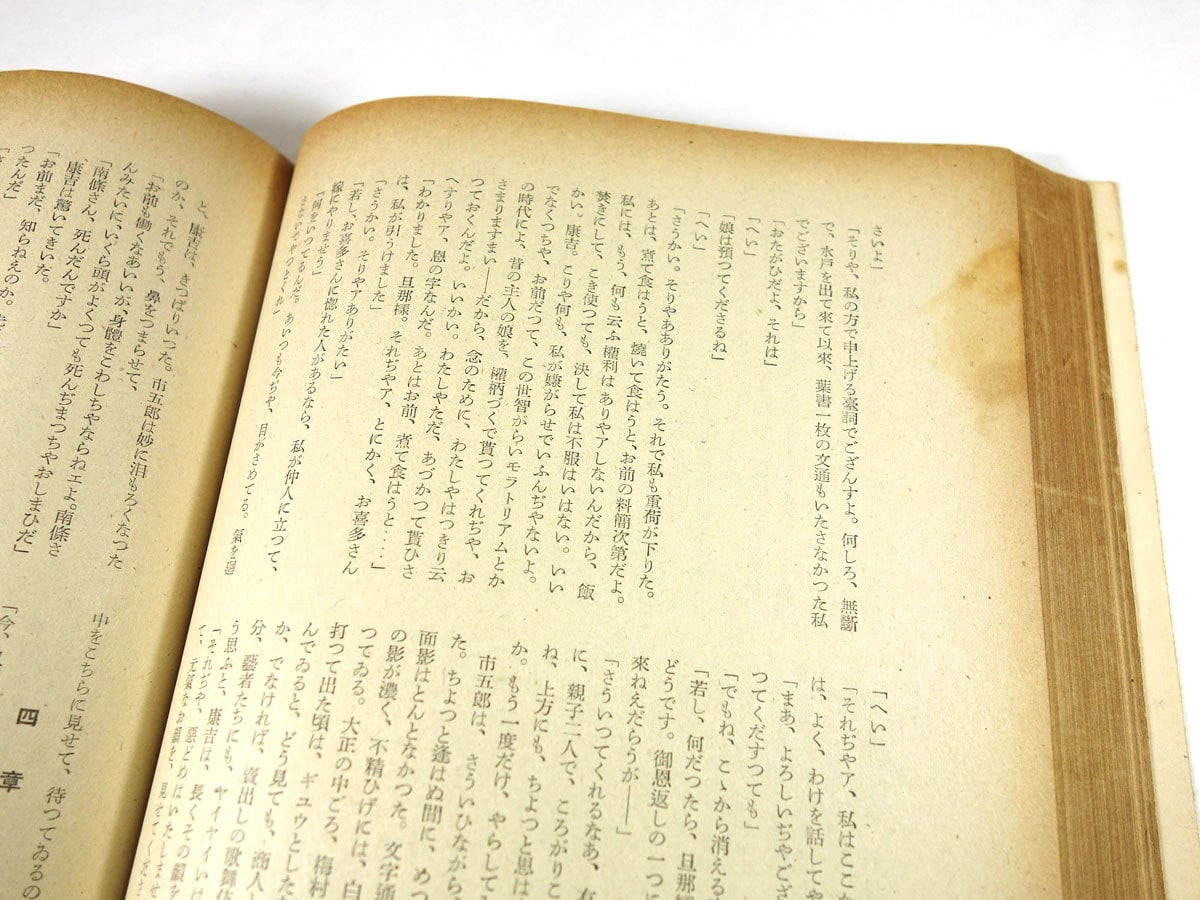 さいよ」
「そりや、私の方で申上げる臺詞でござんすよ。何しろ、無斷
で、水戸を出て來て以來、葉書一枚の文通もいたさなかつた私
でございますから」
「おたがひだよ、それは」
「へい」
「娘は預つてくださるね」
「へい」
「さうかい。そりやあありがたう。それで私も重荷が下りた。
あとは、煮て食はうと、燒いて食はうと、お前の料簡次第だよ。
私には、もう、何も云ふ權利はありやアしないんだから、飯
焚きにして、こき使つても、決して私は不服はいはない。いい
かい。康吉。こりや何も、私が嫌がらせでいふんぢやないよ。
でなくつちや、お前だつて、この世智がらいモラトリアムとか
の時代によ、昔の主人の娘を、權柄づくで貰つてくれぢや、お
さまりますまい――だから、念のために、わたしやはつきり云
つておくんだよ。いいかい。わたしやただ、あづかつて貰ひさ
へすりやア、恩の字なんだ。あとはお前、煮て食はうと‥‥」
「わかりました。旦那樣。それぢやア、とにかく、お喜多さん
は、私が引うけました」
「さうかい。そりやアありがたい」
「若し、お喜多さんに惚れた人があるなら、私が仲人に立つて、
嫁にやりませう」
「何をいつてるんだ。あいつも今ぢや、目がさめてる。氣を廻
「へい」
「それぢやア、私はここ
は、よく、わけを話してや
「まあ、よろしいぢやござ
つてくだすつても」
「でもね、こゝから消える
「若し、何だつたら、旦那
どうです。御恩返しの一つに
來ねえだらうが――」
「さういつてくれるなあ、
に、親子二人で、ころがりこ
ね、上方にも、ちよつと思は
か。もう一度だけ、やらして
市五郎は、さういひながら
た。ちよつと逢はぬ間に、めつ
面影はとんとなかつた。文字通
の影が濃く、不精ひげには、白
つてゐる。大正の中ごろ、梅村
打つて出た頃は、ギユウとした
んでゐると、どう見ても、商人
か、でなければ、賣出しの歌舞伎
分、藝者たちにも、ヤイヤイいは
う思ふと、康吉は、長くその顏を
「それぢや、惡どめはいたしませ
て、元氣なお顏を、見せてくださ
と、康吉は、きつぱりいつた。市五郎は妙に泪もろくなつた
のか、それでもう、鼻をつまらせて、
「お前も働くなあいいが、身體をこわしちやならねエよ。南條さ
んみたいに、いくら頭がよくつても死んぢまつちやおしまひだ」
「南條さん、死んだんですか」
康吉は驚いてきいた。
「お前まだ、知らねえのか。
つたんだ」
中をこちらに見せて、待つてゐるの
四章
「今、